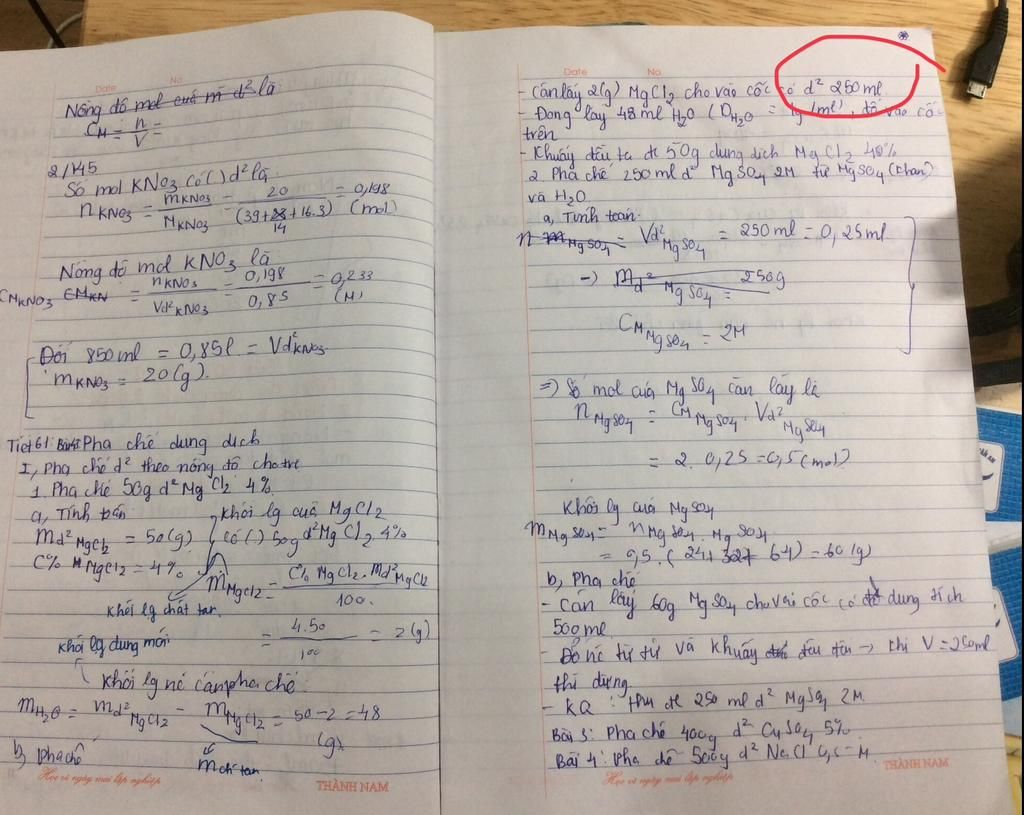 Date No
Nồng độ mol của m d² là
C_M = n/V =
2/145
Số mol KNO₃ có () d² là
n KNO₃ = m KNO₃ / M KNO₃ = 20 / (39+14+16.3) = 0,198 (mol)
Nồng độ mol KNO₃ là
CM KNO₃ = n KNO₃ / Vd² KNO₃ = 0,198 / 0,85 = 0,233 (M)
Đổi 850 ml = 0,85l = Vd² KNO₃
m KNO₃ = 20 (g).
Tiết 61: Bài 43 Pha chế dung dịch
I, Pha chế d² theo nồng độ cho trc
1. Pha chế 50g d² MgCl₂ 4%.
a, Tính toán
md² MgCl₂ = 50 (g)
C% MgCl₂ = 4%
khối lg chất tan
khối lg của MgCl₂
có (.) 50g d² MgCl₂ 4%
m MgCl₂ = C% MgCl₂ . md² MgCl₂ / 100.
= 4.50 / 100 = 2 (g)
khối lg dung môi
khối lg nc cần pha chế:
m H₂O = md² MgCl₂ - m MgCl₂ = 50 - 2 = 48 (g).
m ch tan
b, pha chế
Học vì ngày mai lập nghiệp THÀNH NAM
Date No
- Cần lấy 2(g) MgCl₂ cho vào cốc có d² 250 ml
- Đong lấy 48 ml H₂O (D H₂O = 1g/ml), đổ vào cốc
trên
- Khuấy đều ta đc 50g dung dịch MgCl₂ 40%
2. Pha chế 250 ml d² MgSO₄ 2M từ MgSO₄ (khan)
và H₂O
a, Tính toán.
n m MgSO₄ = Vd² MgSO₄ = 250 ml = 0,25 ml
→) m d² MgSO₄ = 250g
CM MgSO₄ = 2M
=) Số mol của MgSO₄ cần lấy là
n MgSO₄ = CM MgSO₄ . Vd² MgSO₄
= 2. 0,25 = 0,5 (mol)
Khối lg của MgSO₄
m MgSO₄ = n MgSO₄ . M MgSO₄
= 0,5 . (24+32+64) = 60 (g)
b, Pha chế
- Cần lấy 60g MgSO₄ cho vào cốc có dung tích
500 ml
- Đổ nc từ từ và khuấy đều đến → khi V = 250ml
thì dừng.
- KQ : thu đc 250 ml d² MgSO₄ 2M.
Bài 3: Pha chế 400g d² CuSO₄ 5%.
Bài 4: Pha chế 500g d² NaCl M.
Học vì ngày mai lập nghiệp THÀNH NAM